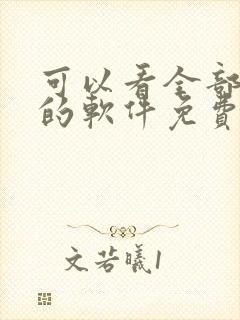 可以看全部
的軟件免費
文若曦1